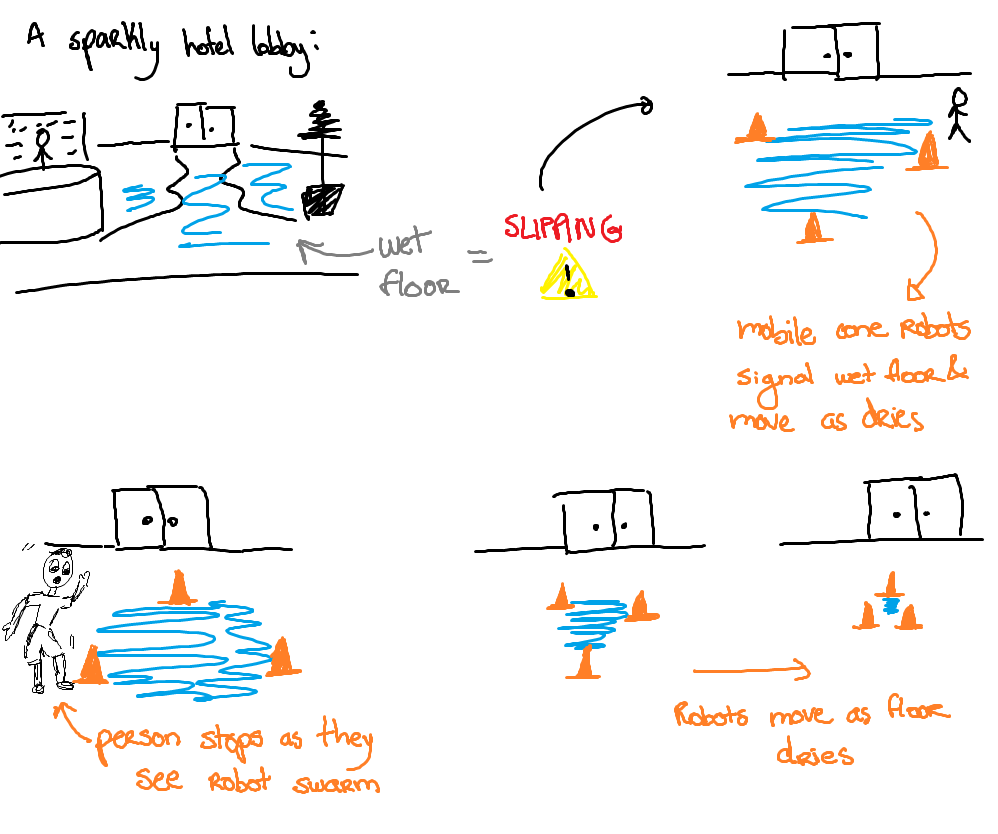 A sparkly hotel lobby:
wet
floor
=
SLIPPING
!
mobile cone Robots
signal wet floor &
move as dries
person stops as they
see Robot swarm
Robots move as floor
dries